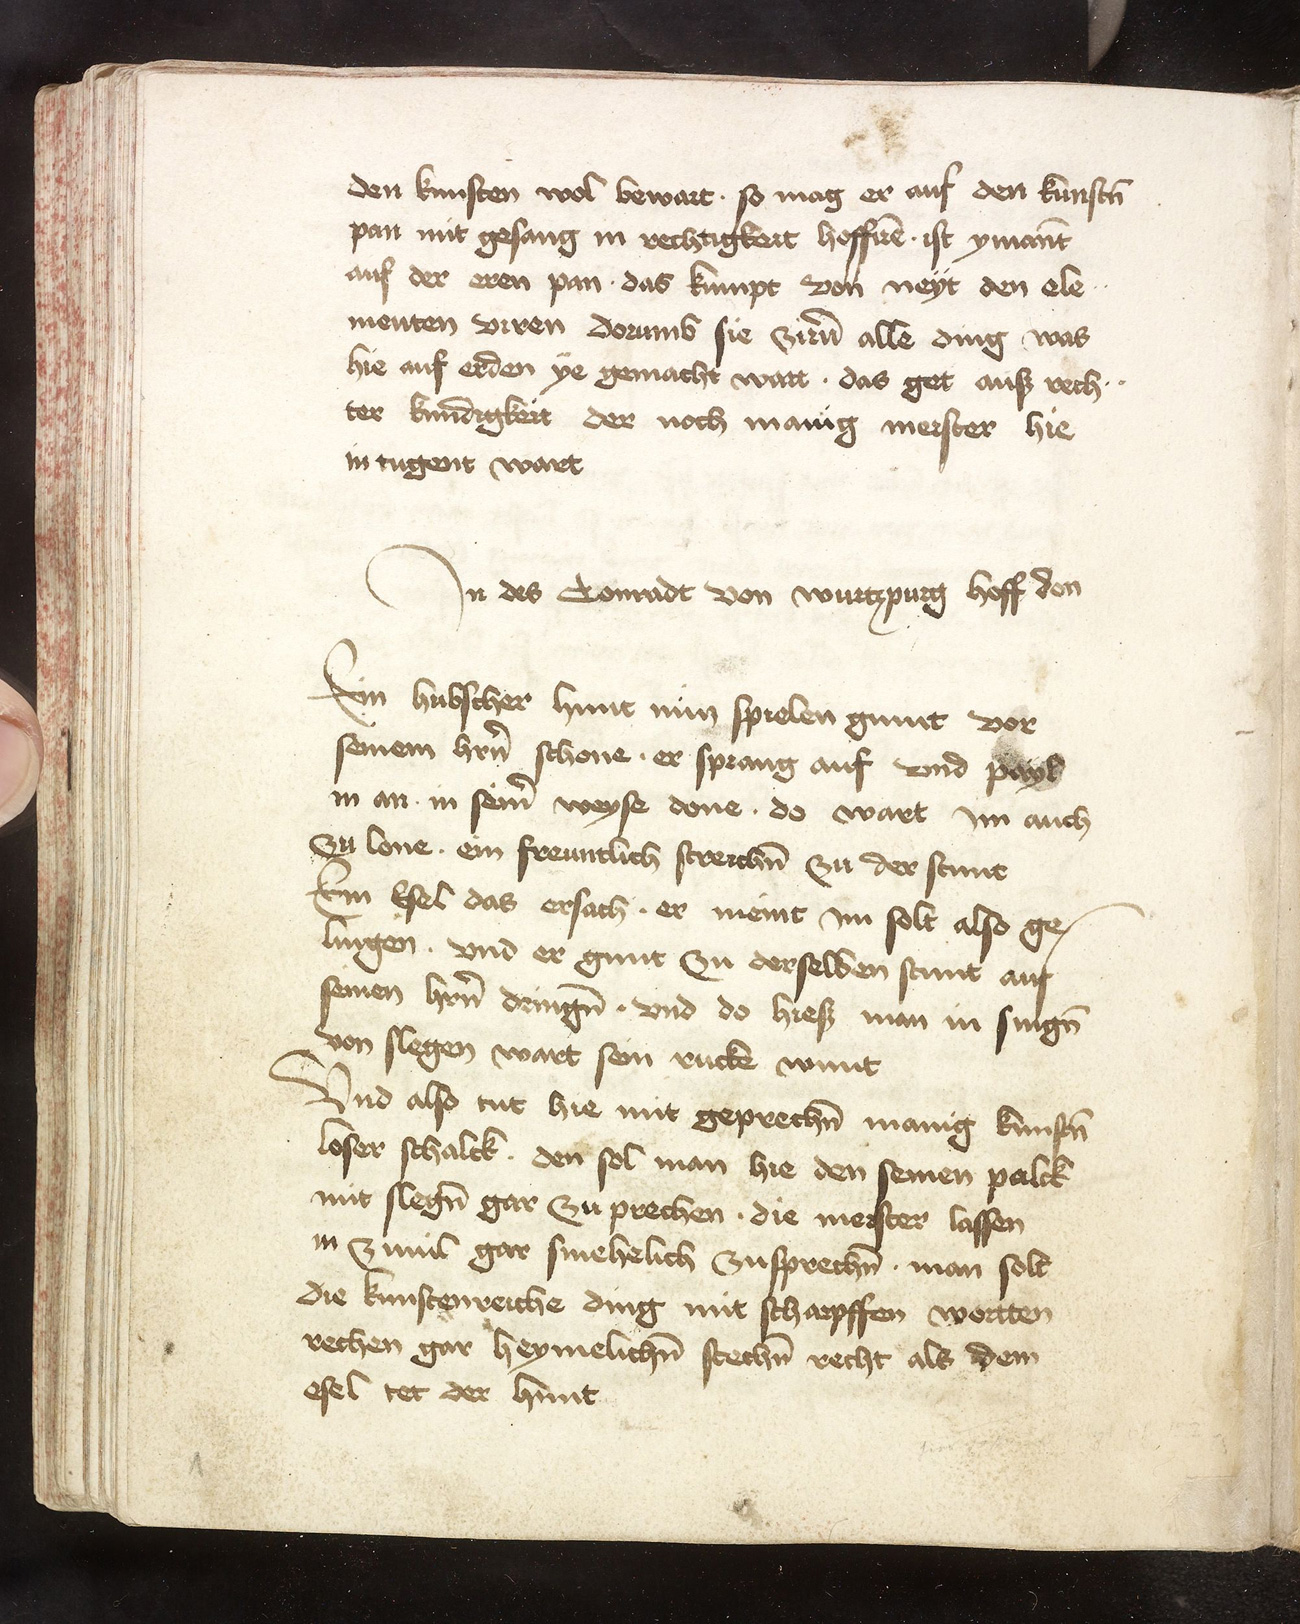 den kunsten wol bewart · so mag er auf den kunstn̄
pan mit gesang in rechtigkeit hoffirē · ist ymant
auf der eren pan · das kumpt von neyt den ele
menten viren dorumb sie zirn̄ alle ding was
hie auf erden ye gemacht wart · das get auß rech
ter kundigkeit der noch manig meister hie
in tugent wart
In des Conradt von wurtzpurg hoff don
Ein hubscher hunt nun spielen gunt vor
seinem hrn̄ schone · er sprang auf vnd payl
in an in seim̄ weyse done · do wart im auch
zu lone · ein freuntlich streichn̄ zu der stunt
Ein Esel das ersach · er meint im solt also ge
lingen · vnd er gunt zu derselben stunt auf
seinen hrn̄ dringn̄ · vnd do hieß man in singn̄
von slegen wart sein rucke wunt
Vnd also tut hie mit geprechn̄ manig kunstn̄
loser schalck · den sol man hie den seinen palck
mit slegn̄ gar zu prechen · die meister lassen
in gar smehelich zusprechn̄ · man solt
die kunstenreiche ding mit scharpffen wortten
rechen gar heymelichn̄ stechn̄ recht als dem
esel tet der hunt